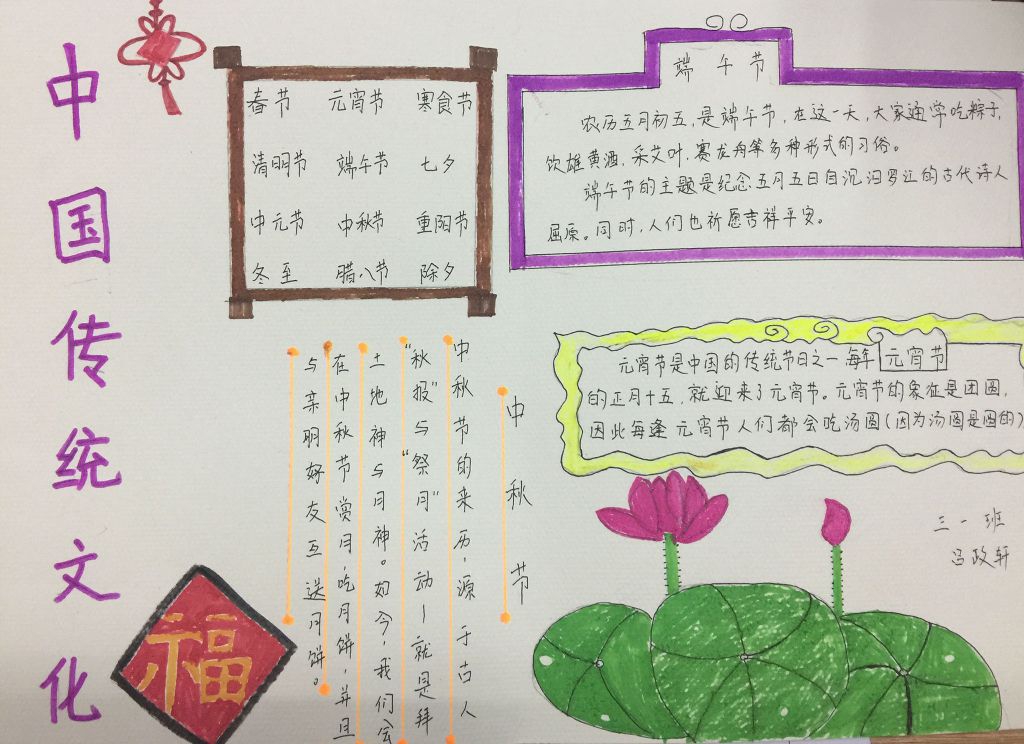 中国传统文化
春节 元宵节 寒食节
清明节 端午节 七夕
中元节 中秋节 重阳节
冬至 腊八节 除夕
端午节
农历五月初五,是端午节,在这一天,大家通常吃粽子,
饮雄黄酒,采艾叶,赛龙舟等多种形式的习俗。
端午节的主题是纪念五月五日自沉汨罗江的古代诗人
屈原。同时,人们也祈愿吉祥平安。
元宵节
元宵节是中国的传统节日之一每年
的正月十五,就迎来了元宵节。元宵节的象征是团圆,
因此每逢元宵节人们都会吃汤圆(因为汤圆是圆的)
中秋节
中秋节的来历,源于古人
“秋报”与“祭月”活动—就是拜
土地神与月神。如今,我们会
在中秋节赏月,吃月饼,并且
与亲朋好友互送月饼。
福
三一班
吕政轩